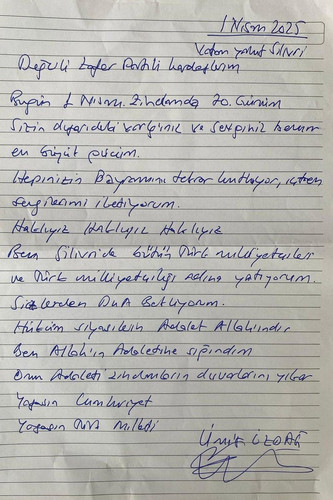 1 Nisan 2025
Vatan yahut Silivri
Değerli Zafer Partili kardeşlerim
Bugün 1 Nisan. Zindanda 70. Günüm
Sizin dışarıdaki varlığınız ve sevginiz benim
en büyük gücüm.
Hepinizin Bayramını tekrar kutluyor, içten
sevgilerimi iletiyorum.
Haklıyız Haklıyız Haklıyız
Ben Silivri'de bütün Türk milliyetçileri
ve Türk milliyetçiliği adına yatıyorum.
Sizlerden DUA Bekliyorum.
Hüküm siyasilerin Adalet Allah'ındır
Ben Allah'ın Adaletine sığındım
Onun Adaleti zindanların duvarlarını yıkar
Yaşasın Cumhuriyet
Yaşasın Türk Milleti
Ümit ÖZDAĞ